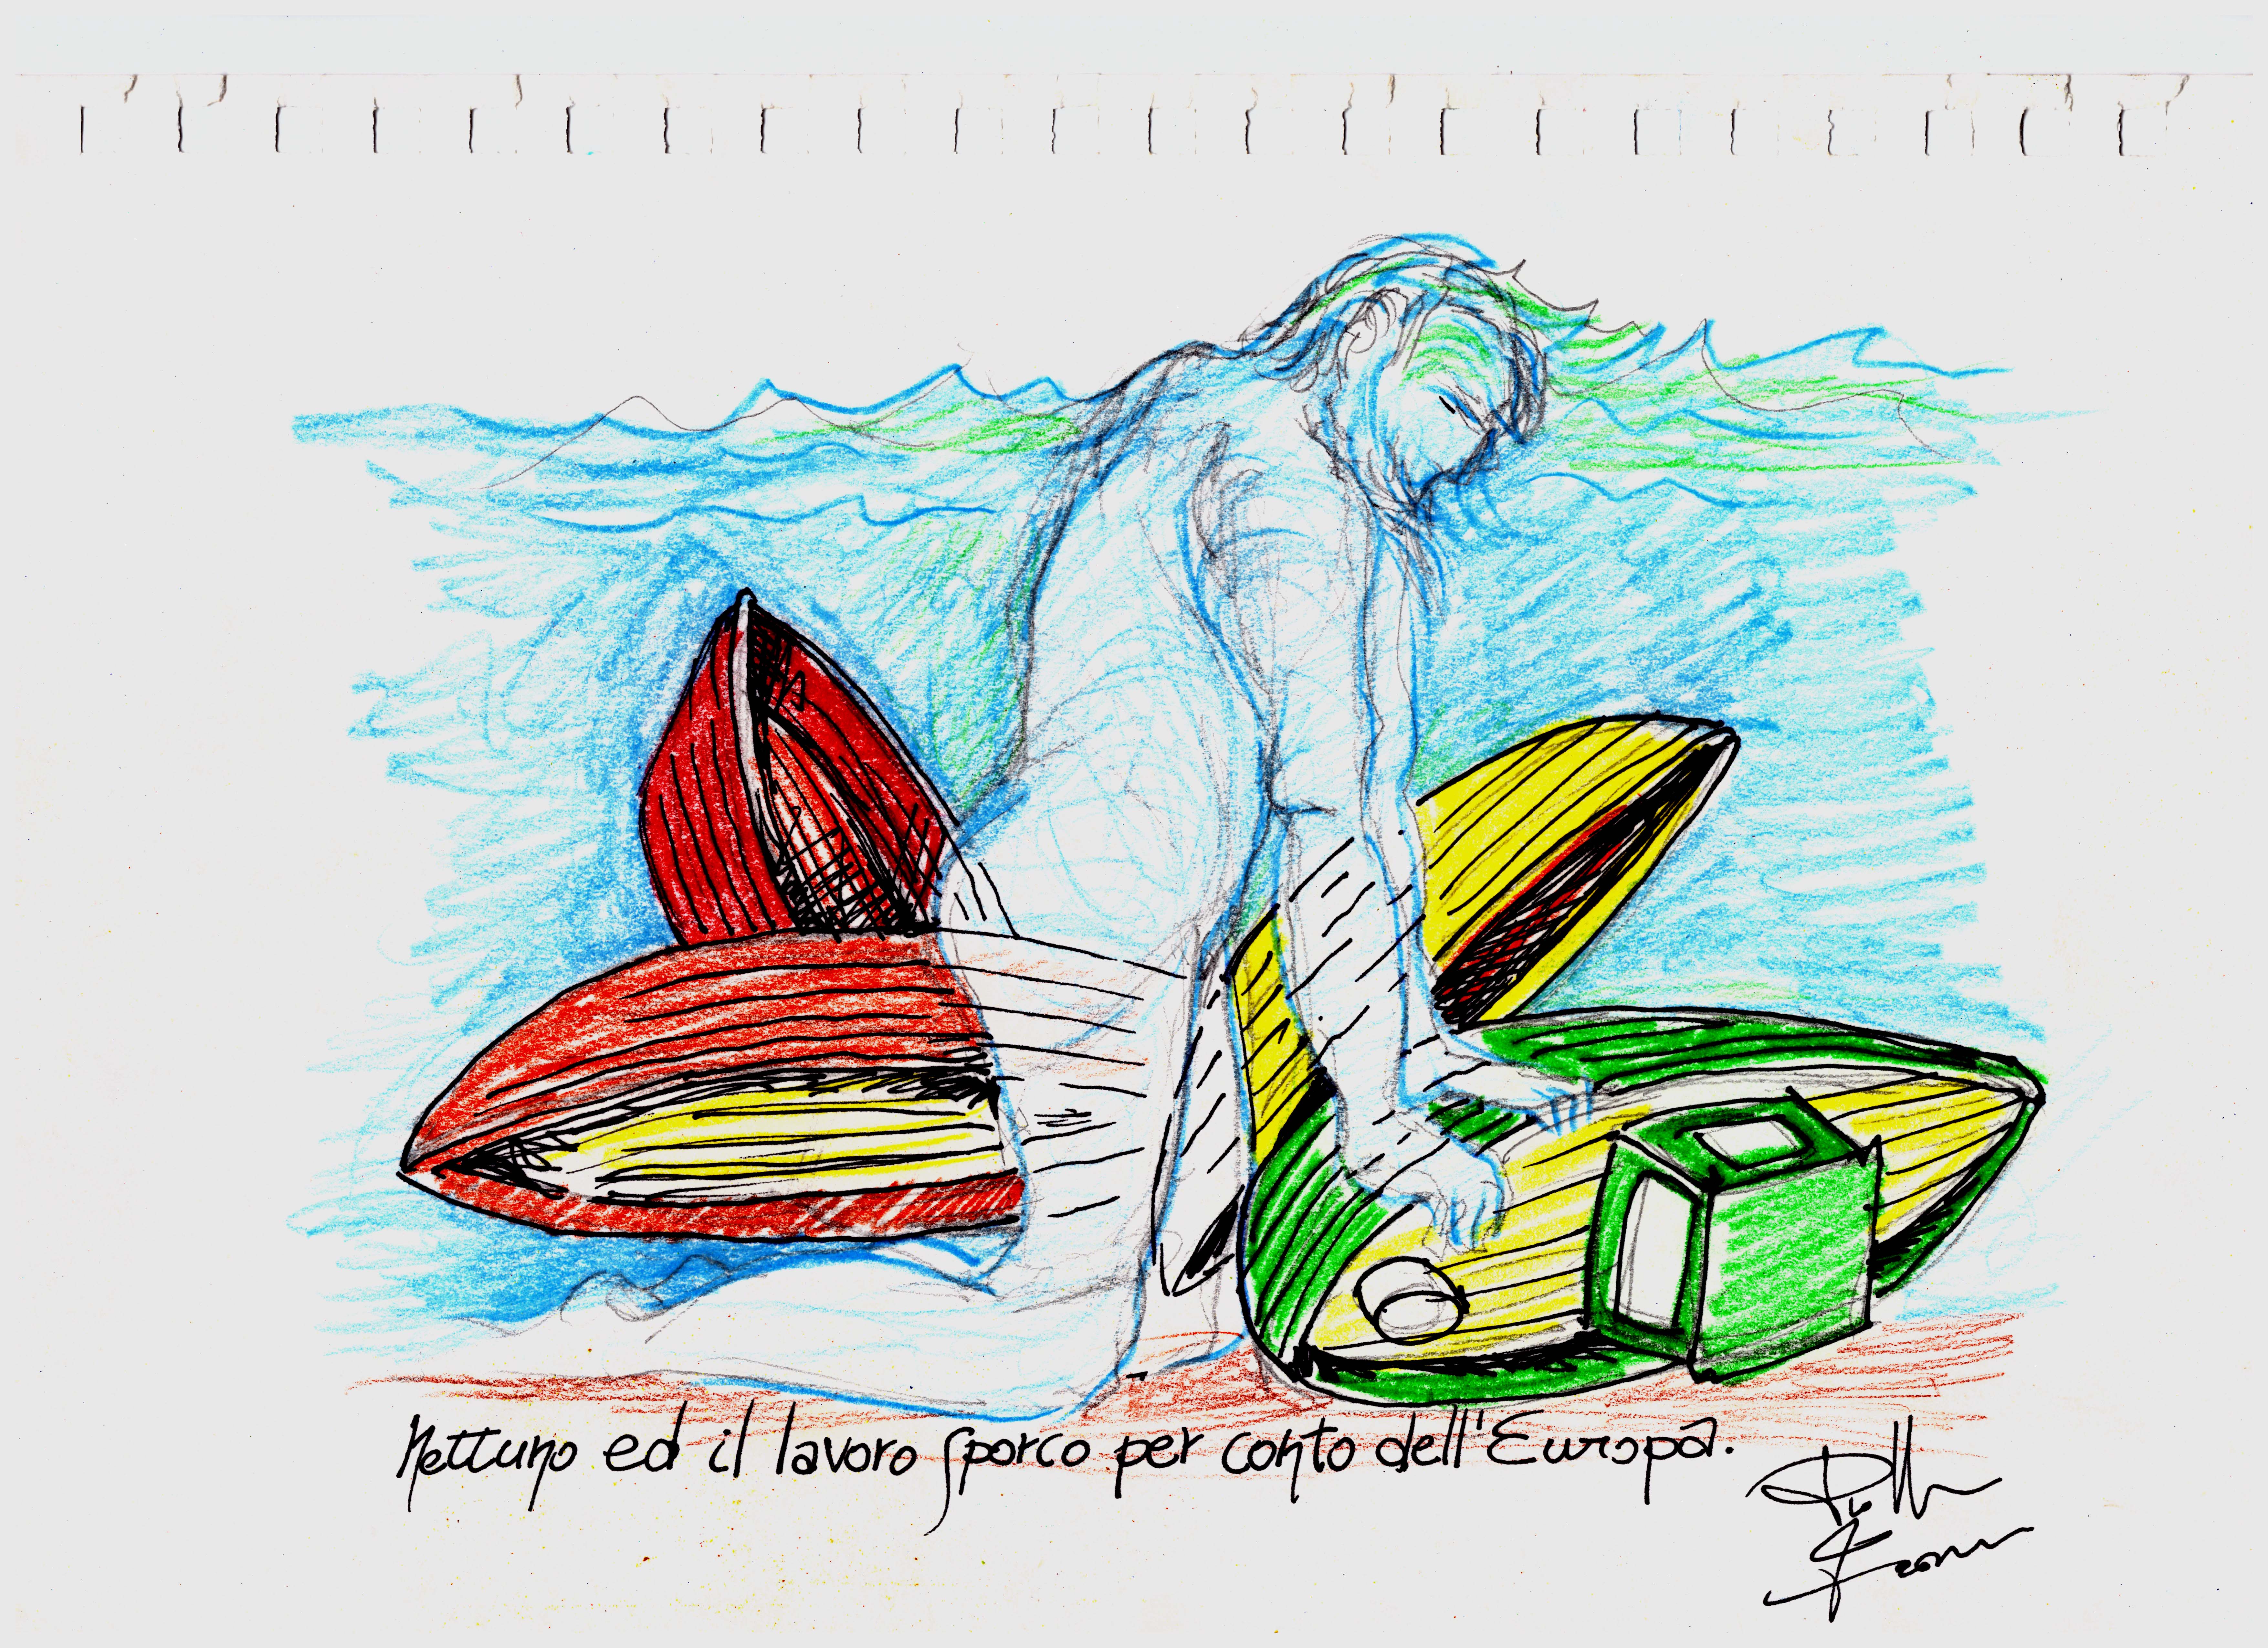 Nettuno ed il lavoro sporco per conto dell'Europa.